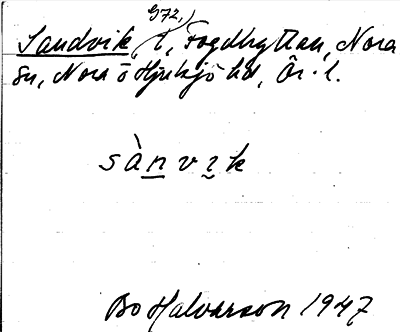 972,
Sandvik, t, Fogdhyttan, Nora
sn, Nora o Hjulsjö hd, Ör. l.
sànvɩk
Bo Halvarson 1947